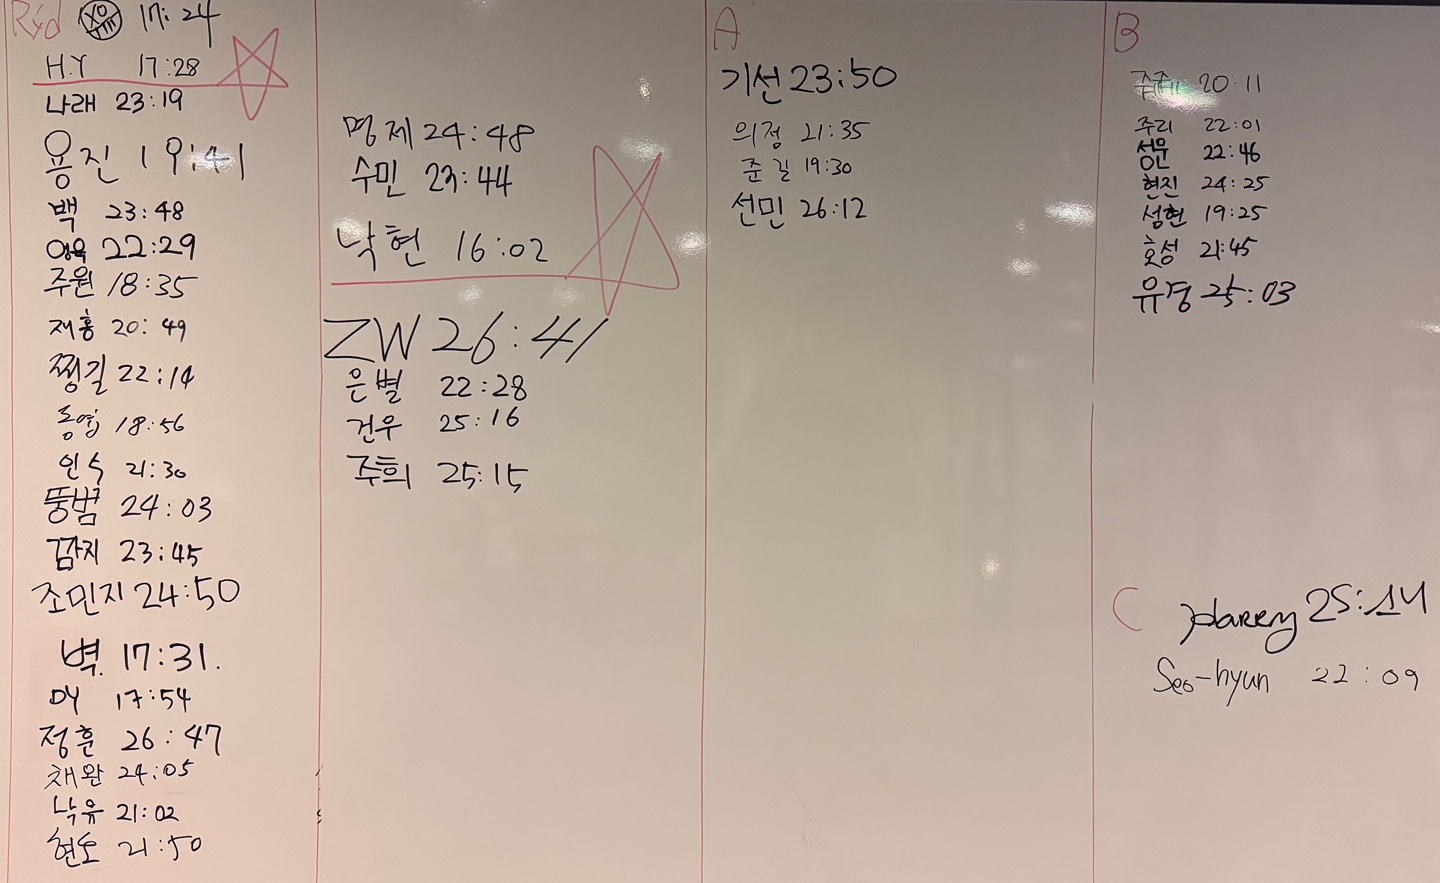 Rxd XO 17:24
H.Y 17:28
나래 23:19
용진 19:41
백 23:48
영욱 22:29
주원 18:35
재홍 20:49
찡길 22:14
동엽 18:56
인식 21:30
뚱범 24:03
깜지 23:45
조민지 24:50
벽. 17:31.
DY 17:54
정훈 26:47
채완 24:05
낙유 21:02
현도 21:50
명제 24:48
수민 23:44
낙현 16:02
ZW 26:41
은별 22:28
건우 25:16
주희 25:15
A
기선 23:50
의정 21:35
준길 19:30
선민 26:12
B
20:11
주리 22:01
성운 22:46
현진 24:25
성현 19:25
호성 21:45
유경 25:03
C
Harry 25:14
Seo-hyun 22:09